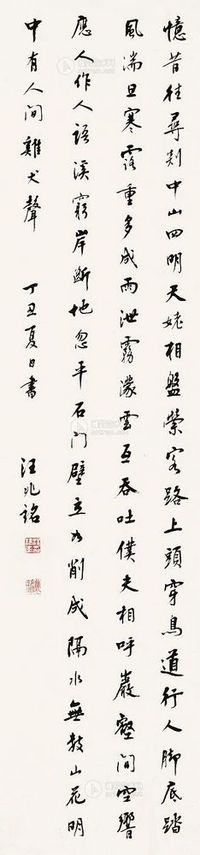 憶昔往尋剡中山四明天姥相盤縈客路上頭穿鳥道行人腳底踏
風湍旦寒露重多成雨泄霧濛雲互吞吐僕夫相呼巖壑間空響
應人作人語溪窮岸斷地忽平石門壁立如削成隔水無數山花明
中有人間雞犬聲
丁丑夏日書
汪兆銘